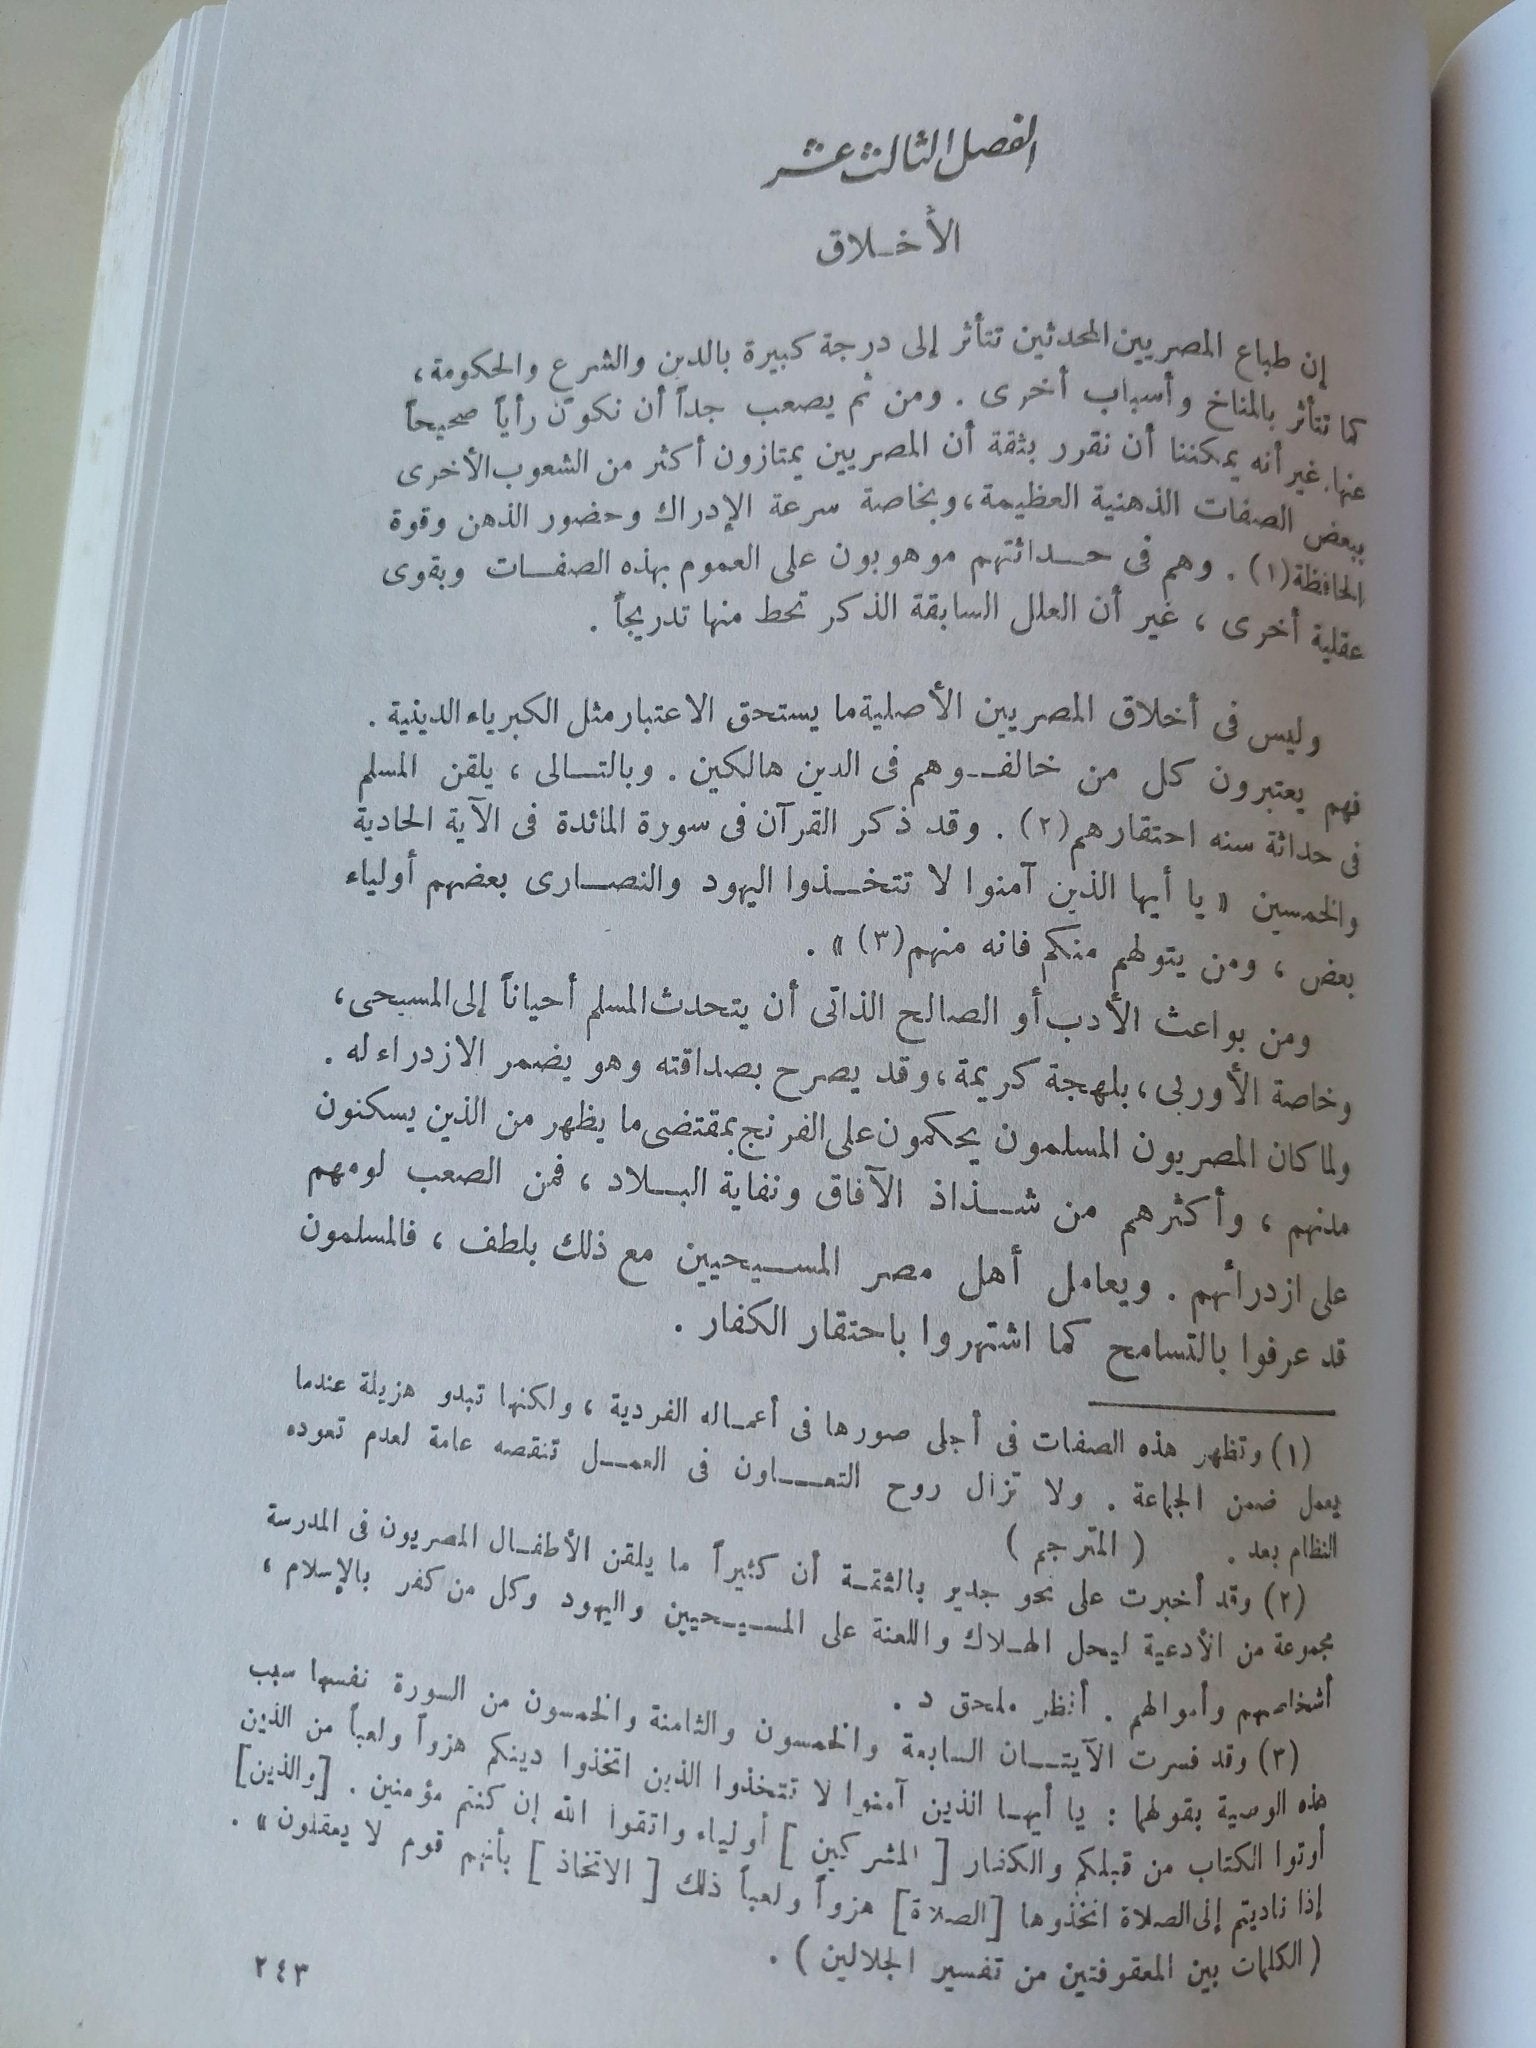 الفصل الثالث عشر
الأخلاق
إن طباع المصريين المحدثين تتأثر إلى درجة كبيرة بالدين والشرع والحكومة،
كما تتأثر بالمناخ وأسباب أخرى . ومن ثم يصعب جداً أن نكوّن رأياً صحيحاً
عنها. غير أنه يمكننا أن نقرر بثقة أن المصريين يمتازون أكثر من الشعوب الأخرى
ببعض الصفات الذهنية العظيمة، وبخاصة سرعة الإدراك وحضور الذهن وقوة
الحافظة(١) . وهم فى حداثتهم موهوبون على العموم بهذه الصفات وبقوى
عقلية أخرى ، غير أن العلل السابقة الذكر تحط منها تدريجاً .
وليس فى أخلاق المصريين الأصلية ما يستحق الاعتبار مثل الكبرياء الدينية .
فهم يعتبرون كل من خالفوهم فى الدين هالكين . وبالتالى ، يلقن المسلم
فى حداثة سنه احتقارهم(٢) . وقد ذكر القرآن فى سورة المائدة فى الآية الحادية
والخمسين « يا أيها الذين آمنوا لا تتخذوا اليهود والنصارى بعضهم أولياء
بعض ، ومن يتولهم منكم فانه منهم(٣) » .
ومن بواعث الأدب أو الصالح الذاتى أن يتحدث المسلم أحياناً إلى المسيحى،
وخاصة الأوربى، بلهجة كريمة، وقد يصرح بصداقته وهو يضمر الازدراء له .
ولما كان المصريون المسلمون يحكمون على الفرنج بمقتضى ما يظهر من الذين يسكنون
مدنهم ، وأكثرهم من شذاذ الآفاق ونفاية البلاد ، فمن الصعب لومهم
على ازدرائهم . ويعامل أهل مصر المسيحيين مع ذلك بلطف ، فالمسلمون
قد عرفوا بالتسامح كما اشتهروا باحتقار الكفار .
(١) وتظهر هذه الصفات فى أجلى صورها فى أعماله الفردية ، ولكنها تبدو هزيلة عندما
يعمل ضمن الجماعة . ولا تزال روح التعاون فى العمل تنقصه عامة لعدم تعوده
النظام بعد . ( المترجم )
(٢) وقد أخبرت على نحو جدير بالثقة أن كثيراً ما يلقن الأطفال المصريون فى المدرسة
مجموعة من الأدعية ليحل الهلاك واللعنة على المسيحيين واليهود وكل من كفر بالإسلام ،
أشخاصهم وأموالهم . أنظر ملحق د .
(٣) وقد فسرت الآيتان السابعة والخمسون والثامنة والخمسون من السورة نفسها سبب
هذه الوصية بقولهما : يا أيها الذين آمنوا لا تتخذوا الذين اتخذوا دينكم هزواً ولعباً من الذين
أوتوا الكتاب من قبلكم والكفار [ المشركين ] أولياء واتقوا الله إن كنتم مؤمنين . [والذين]
إذا ناديتم إلى الصلاة اتخذوها [الصلاة] هزواً ولعباً ذلك [ الاتخاذ ] بأنهم قوم لا يعقلون » .
( الكلمات بين المعقوفتين من تفسير الجلالين ) .
٢٤٣